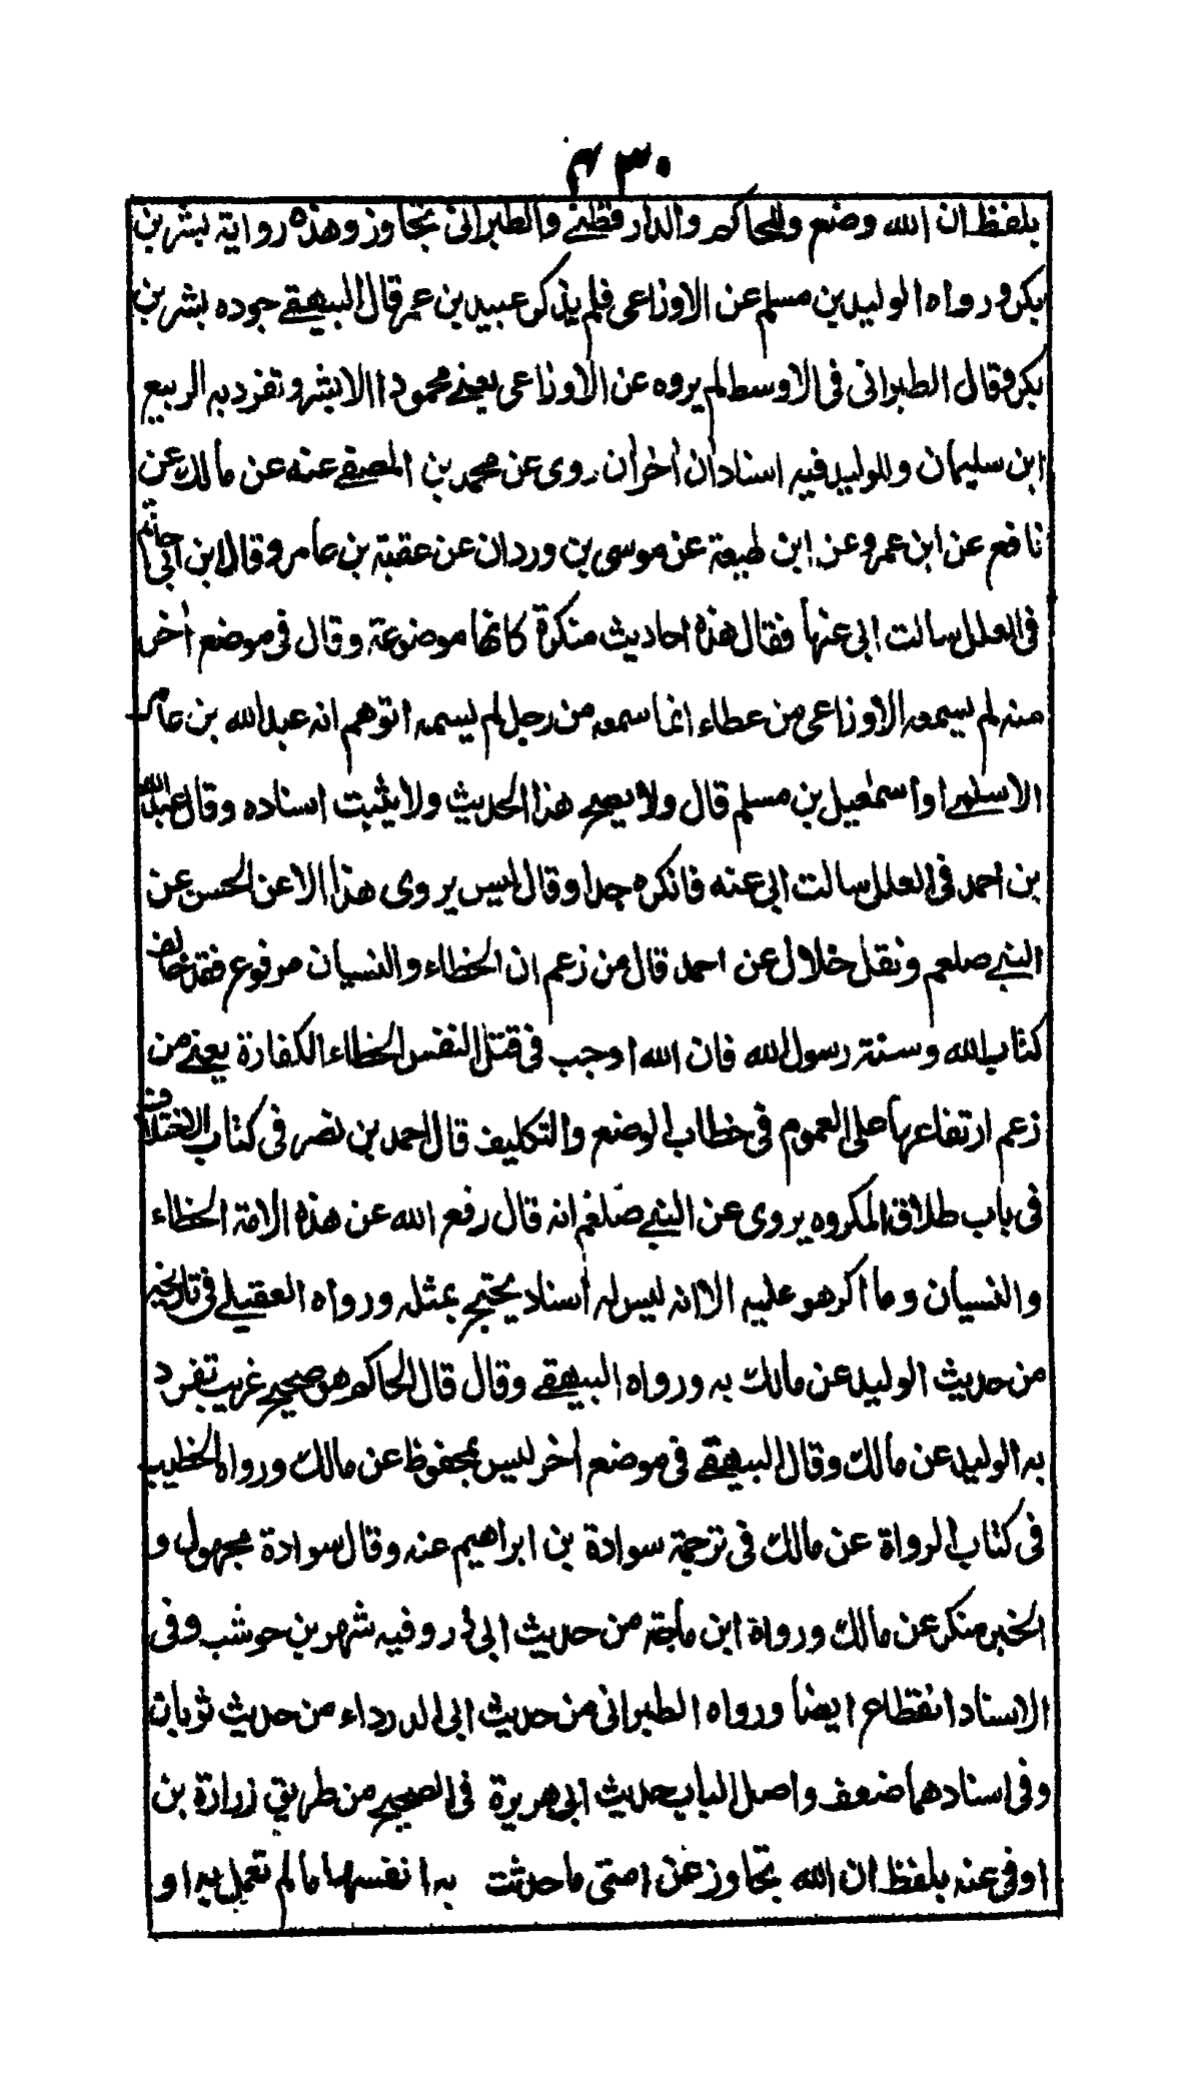 ٤٣٠
بلفظ ان الله وضع وللحاكم والدارقطني والطبراني تجاوز وهذه رواية بشر بن
بكر ورواه الوليد بن مسلم عن الاوزاعي فلم يذكر عبيد بن عمر قال البيهقي جوده بشر بن
بكر وقال الطبراني في الاوسط لم يروه عن الاوزاعي يعني مجمودا الا بشر وتفرد به الربيع
ابن سليمان وللوليد فيه اسنادان اخران روى عن محمد بن المصفي عنه عن مالك عن
نافع عن ابن عمر وعن ابن لهيعة عن موسى بن وردان عن عقبة بن عامر وقال ابن ابي حاتم
في العلل سالت ابي عنها فقال هذه احاديث منكرة كانها موضوعة وقال في موضع اخر
منه لم يسمعه الاوزاعي من عطاء انما سمعه من رجل لم يسمه اتوهم انه عبد الله بن عامر
الاسلمي او اسمعيل بن مسلم قال ولا يصح هذا الحديث ولا يثبت اسناده وقال عبد الله
بن احمد في العلل سالت ابي عنه فانكره جدا وقال ليس يروى هذا الا عن الحسن عن
النبي صلعم ونقل خلال عن احمد قال من زعم ان الخطاء والنسيان مرفوع فقد خالف
كتاب الله وسنة رسول الله فان الله اوجب في قتل النفس الخطاء الكفارة يعني من
زعم ارتفاعها على العموم في خطاب الوضع والتكليف قال احمد بن نصر في كتاب الاختلاف
في باب طلاق المكروه يروى عن النبي صلعم انه قال رفع الله عن هذه الامة الخطاء
والنسيان وما اكرهو عليه الا انه ليس له اسناد يحتج بمثله ورواه العقيلي في تاريخه
من حديث الوليد عن مالك به ورواه البيهقي وقال قال الحاكم هو صحيح غريب تفرد
به الوليد عن مالك وقال البيهقي في موضع اخر ليس بمحفوظ عن مالك ورواه الخطيب
في كتاب الرواة عن مالك في ترجمة سوادة بن ابراهيم عنه وقال سوادة مجهول و
الخبر منكر عن مالك ورواة ابن ماجة من حديث ابي ذر وفيه شهر بن حوشب وفي
الاسناد انقطاع ايضا ورواه الطبراني من حديث ابي الدرداء من حديث ثوبان
وفي اسنادهما ضعف واصل الباب حديث ابي هريرة في الصحيح من طريق زرارة بن
اوفى عنه بلفظ ان الله تجاوز عن امتي ما حدثت به انفسها ما لم تعمل به او